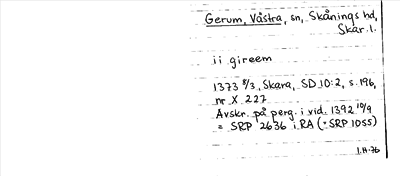 Gerum, Västra, sn, Skånings hd,
Skar. l.
ii gireem
1373 8/3, Skara, SD 10:2, s. 196,
nr X 227
Avskr. på perg. i vid. 1392 10/9
= SRP 2636 i RA (*SRP 1055)
1.H.76